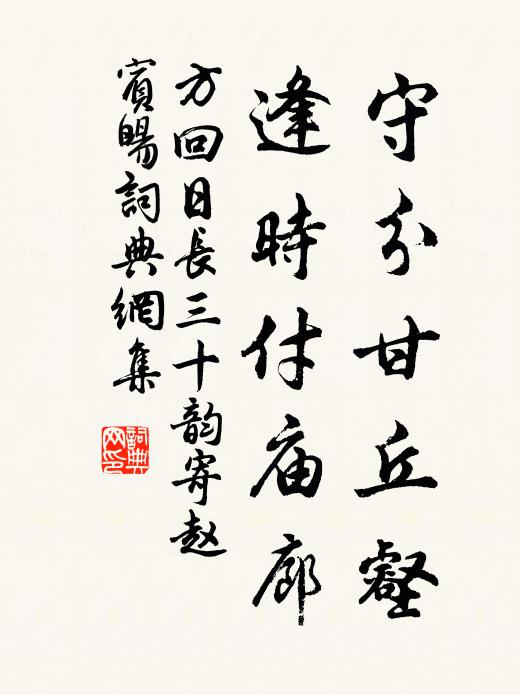 守分甘丘壑
逢時付庙廊
方回日長三十韵寄赵
賓暘詞典網集
詞典網印